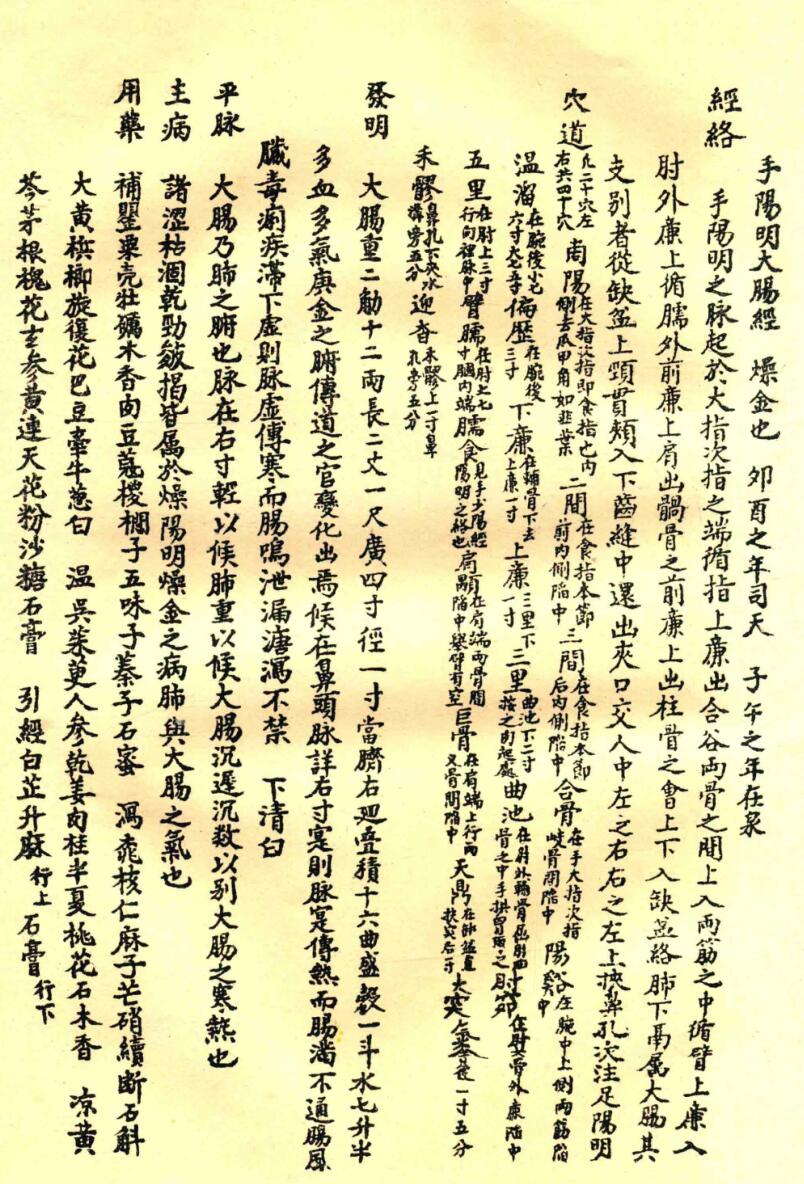 手陽明大腸經　燥金也　夘酉之年司天　子午之年在泉
經絡　手陽明之脉起於大指次指之端循指上廉出合谷兩骨之間上入兩筋之中循臂上廉入
肘外廉上循臑外前廉上肩出髃骨之前廉上出柱骨之會上下入缺盆絡肺下鬲屬大腸其
支别者從缺盆上頸貫頰入下齒縫中還出夾口交人中左之右右之左上挾鼻孔次注足陽明
穴道　凡二十穴左右共四十穴　商陽在大指次指即食指也内側去爪甲角如韭葉　二間在食指本節前内側陷中　三間在食指本節后内側陷中　合骨在手大指次指岐骨間陷中　陽谿在腕中上側兩筋陷中
温溜在腕後　六寸　偏歷在腕後三寸　下廉在輔骨下去上廉一寸　上廉三里下一寸　三里曲池下二寸按之肉起處　曲池在肘外輔骨　骨之中手拱胸取之　肘節　在肘　骨外廉陷中
五里在肘上三寸行向裡脉中　臂臑在肘上七寸膕内端　臑會見手少陽經陽明之絡也　肩顒在肩端兩骨間陷中舉臂有空　巨骨在肩端上行兩叉骨間陷中　天鼎在缺盆　扶突后一寸　夫突　一寸五分
禾髎鼻孔下夾水溝旁五分　迎香禾髎上一寸鼻孔旁五分
發明　大腸重二觔十二兩長二丈一尺廣四寸徑一寸當臍右廻疊積十六曲盛穀一斗水七升半
多血多氣庚金之腑傳道之官變化出焉候在鼻頭脉詳右寸寔則脉寔傳熱而腸滿不通腸風
臟毒痢疾滯下虛則脉虛傳寒而腸鳴泄漏溏瀉不禁　下清臼
平脉　大腸乃肺之腑也脉在右寸輕以候肺重以候大腸沉遲沉数以别大腸之寒熱也
主病　諸澀枯涸乾勁皴揭皆屬於燥陽明燥金之病肺與大腸之氣也
用藥　補罌粟壳牡礪木香肉豆蔻椶櫚子五味子蓁子石蜜　瀉桃核仁麻子芒硝續断石斛
大黄梹榔旋復花巴豆牽牛葱白　温吳茱萸人參乾姜肉桂半夏桃花石木香　凉黄
芩茅根槐花玄参黄連天花粉沙糖石膏　引經白芷升麻行上石膏行下